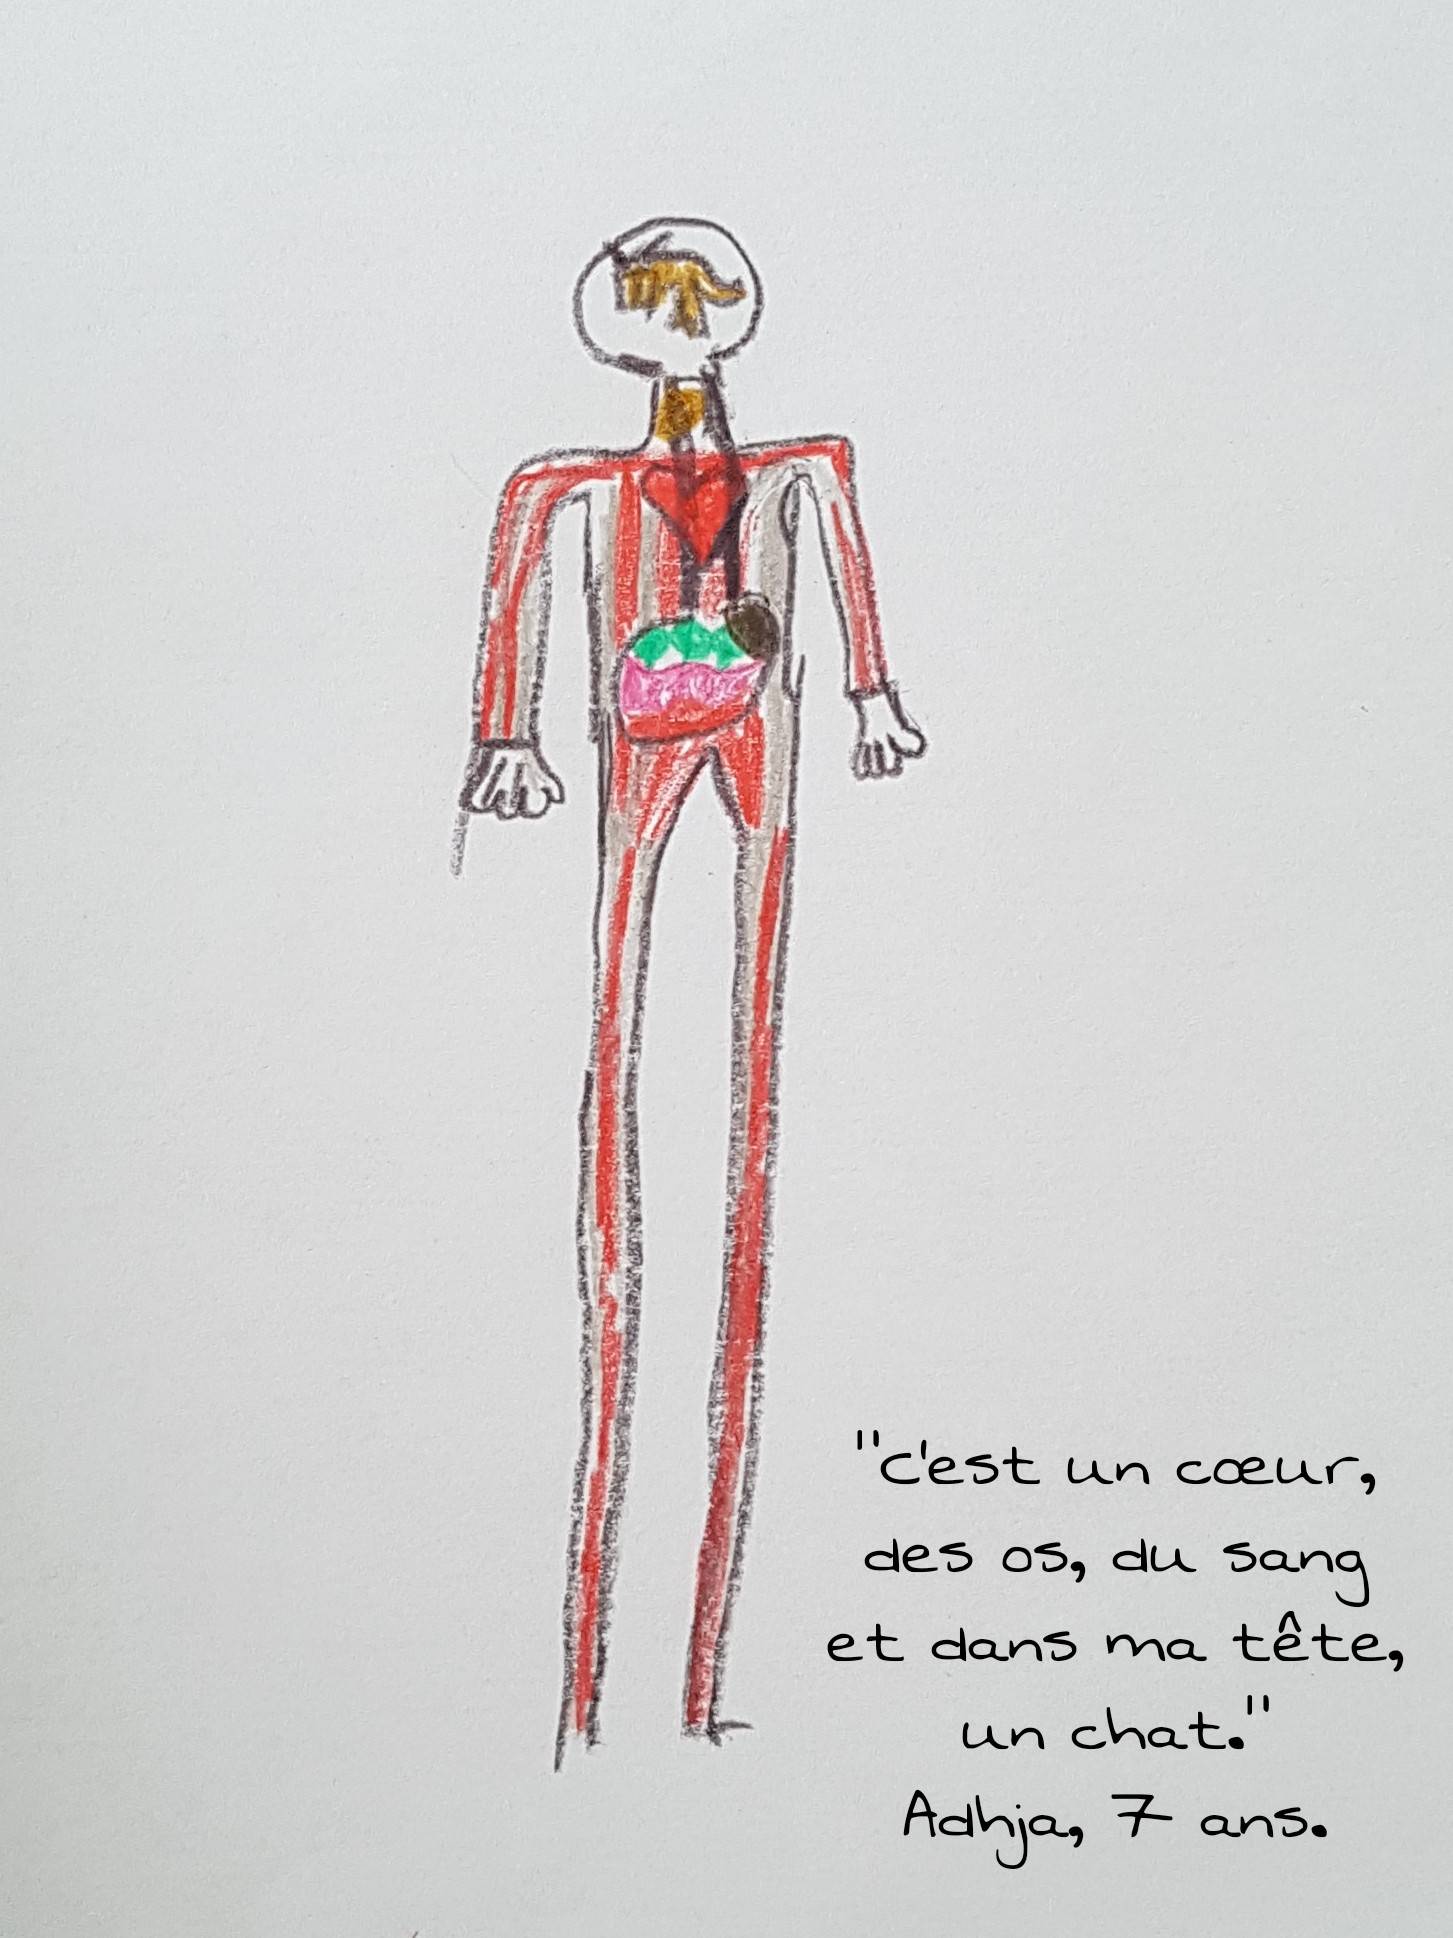 "c'est un cœur,
des os, du sang
et dans ma tête,
un chat."
Adhja, 7 ans.